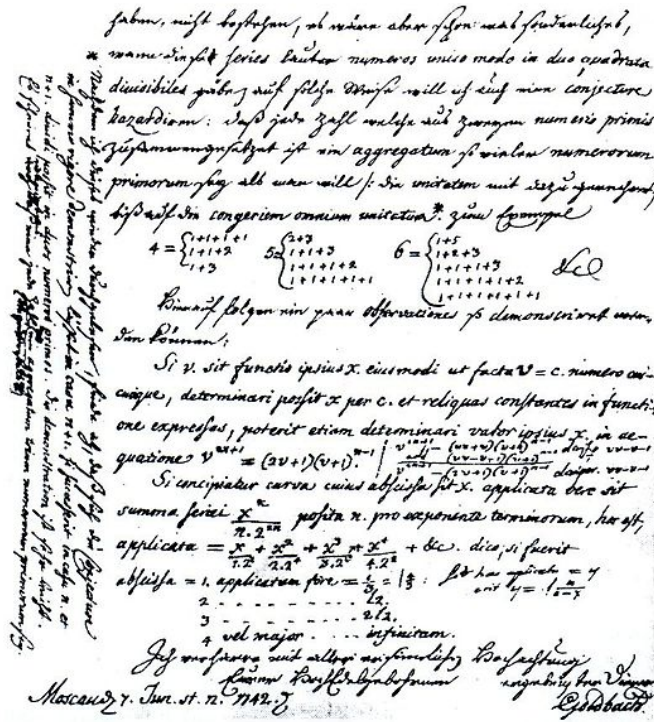 haben, nicht bestehen, es wäre aber schon was sonderliches,
wann diese series lauter numeros unico modo in duo quadrata
divisibiles gäbe; auf solche Weise will ich auch eine conjecture
hazardiren: daß jede Zahl welche aus zweyen numeris primis
zusammengesetzet ist ein aggregatum so vieler numerorum
primorum sey als man will /: die unitatem mit dazu gerechnet
biß auf die congeriem omnium unitatum* zum Exempel
4 = { 1+1+1+1
1+1+2
1+3
5 = { 2+3
1+1+3
1+1+1+2
1+1+1+1+1
6 = { 1+5
1+2+3
1+1+1+3
1+1+1+1+2
1+1+1+1+1+1
&c
Hierauf folgen ein paar observationes so demonstriret wer-
den können:
Si v. sit functio ipsius x. eiusmodi ut facta v = c. numero cui-
cunque, determinari possit x per c. et reliquas constantes in functi-
one expressas, poterit etiam determinari valor ipsius x. in ae-
quatione v²ⁿ⁺¹ = (2v+1)(v+1)ⁿ⁻¹
Si concipiatur curva cuius abscissa sit x. applicata vero sit
summa seriei xⁿ/n.2²ⁿ posita n. pro exponente terminorum, hoc est,
applicata = x/1.2² + x²/2.2⁴ + x³/3.2⁶ + x⁴/4.2⁸ + &c. dico, si fuerit
abscissa = 1. applicatam fore = l4/3
2 . . . . . . . . l2.
3 . . . . . . . . 2l2.
4 vel major . . . . infinitam.
Ich verharre mit aller ersinnlichen Hochachtung
Eurer Hochedelgebohrnen ergebenster Diener
Moscau d. 7. Jun. st. n. 1742. Goldbach.
* Nachdem ich dieses wieder durchgelesen, finde ich, daß sich die conjecture
in summo rigore demonstriren lässet in casu n+1. si successerit in casu n. et
n+1. dividi possit in duos numeros primos. Die demonstration ist sehr leicht.
Es scheinet wenigstens, daß eine jede Zahl die größer ist als 2 ein aggregatum trium numerorum primorum sey.